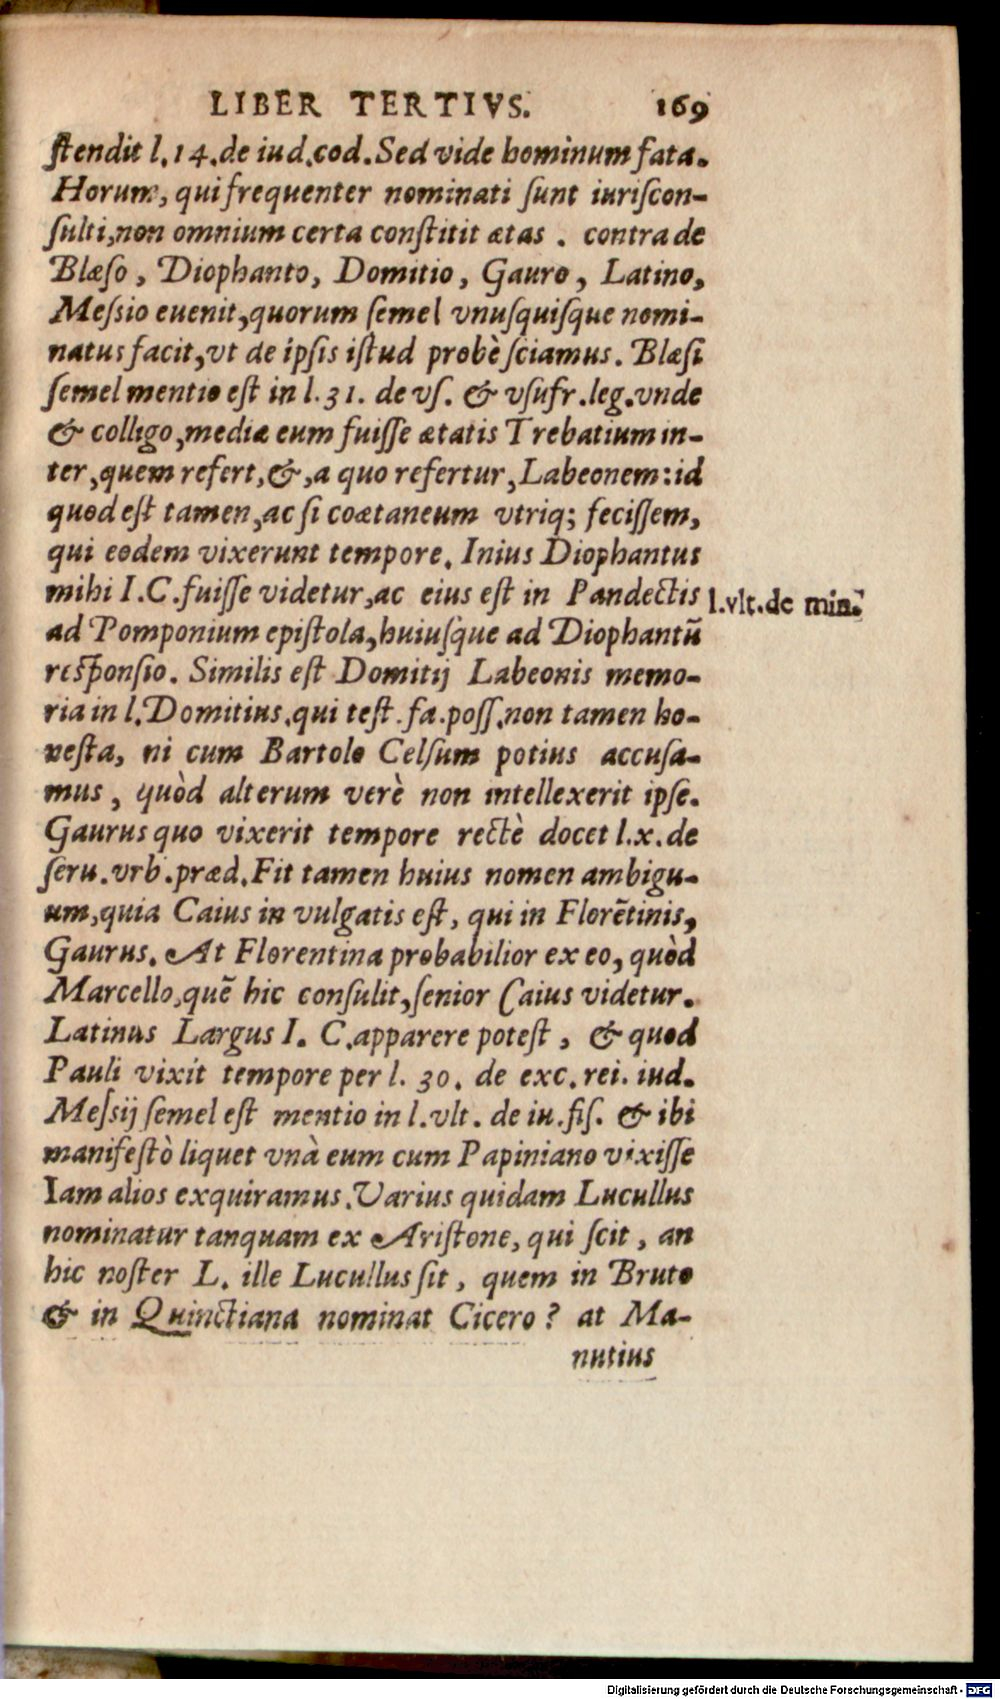 LIBER TERTIVS. 169
ſtendit l. 14. de iud. cod. Sed vide hominum fata.
Horum, qui frequenter nominati ſunt iuriſcon-
ſulti, non omnium certa conſtitit ætas. contra de
Blæſo, Diophanto, Domitio, Gauro, Latino,
Meſsio euenit, quorum ſemel vnuſquiſque nomi-
natus facit, vt de ipſis iſtud probè ſciamus. Blæſi
ſemel mentio eſt in l. 31. de vſ. & vſufr. leg. vnde
& colligo, mediæ eum fuiſſe ætatis Trebatium in-
ter, quem refert, &, a quo refertur, Labeonem: id
quod eſt tamen, ac ſi coætaneum vtriq; feciſſem,
qui eodem vixerunt tempore. Inius Diophantus
mihi I. C. fuiſſe videtur, ac eius eſt in Pandectis
l. vlt. de min.
ad Pomponium epiſtola, huiuſque ad Diophantū
reſponſio. Similis eſt Domitij Labeonis memo-
ria in l. Domitius. qui teſt. fa. poſſ. non tamen ho-
neſta, ni cum Bartolo Celſum potius accuſa-
mus, quòd alterum verè non intellexerit ipſe.
Gaurus quo vixerit tempore rectè docet l. x. de
ſeru. vrb. præd. Fit tamen huius nomen ambigu-
um, quia Caius in vulgatis eſt, qui in Florētinis,
Gaurus. At Florentina probabilior ex eo, quòd
Marcello, quē hic conſulit, ſenior Caius videtur.
Latinus Largus I. C. apparere poteſt, & quod
Pauli vixit tempore per l. 30. de exc. rei. iud.
Meſsij ſemel eſt mentio in l. vlt. de iu. fiſ. & ibi
manifeſtò liquet vnà eum cum Papiniano vixiſſe
Iam alios exquiramus. Varius quidam Lucullus
nominatur tanquam ex Ariſtone, qui ſcit, an
hic noſter L. ille Lucullus ſit, quem in Bruto
& in Quinctiana nominat Cicero? at Ma-
nutius
Digitalisierung gefördert durch die Deutsche Forschungsgemeinschaft - DFG